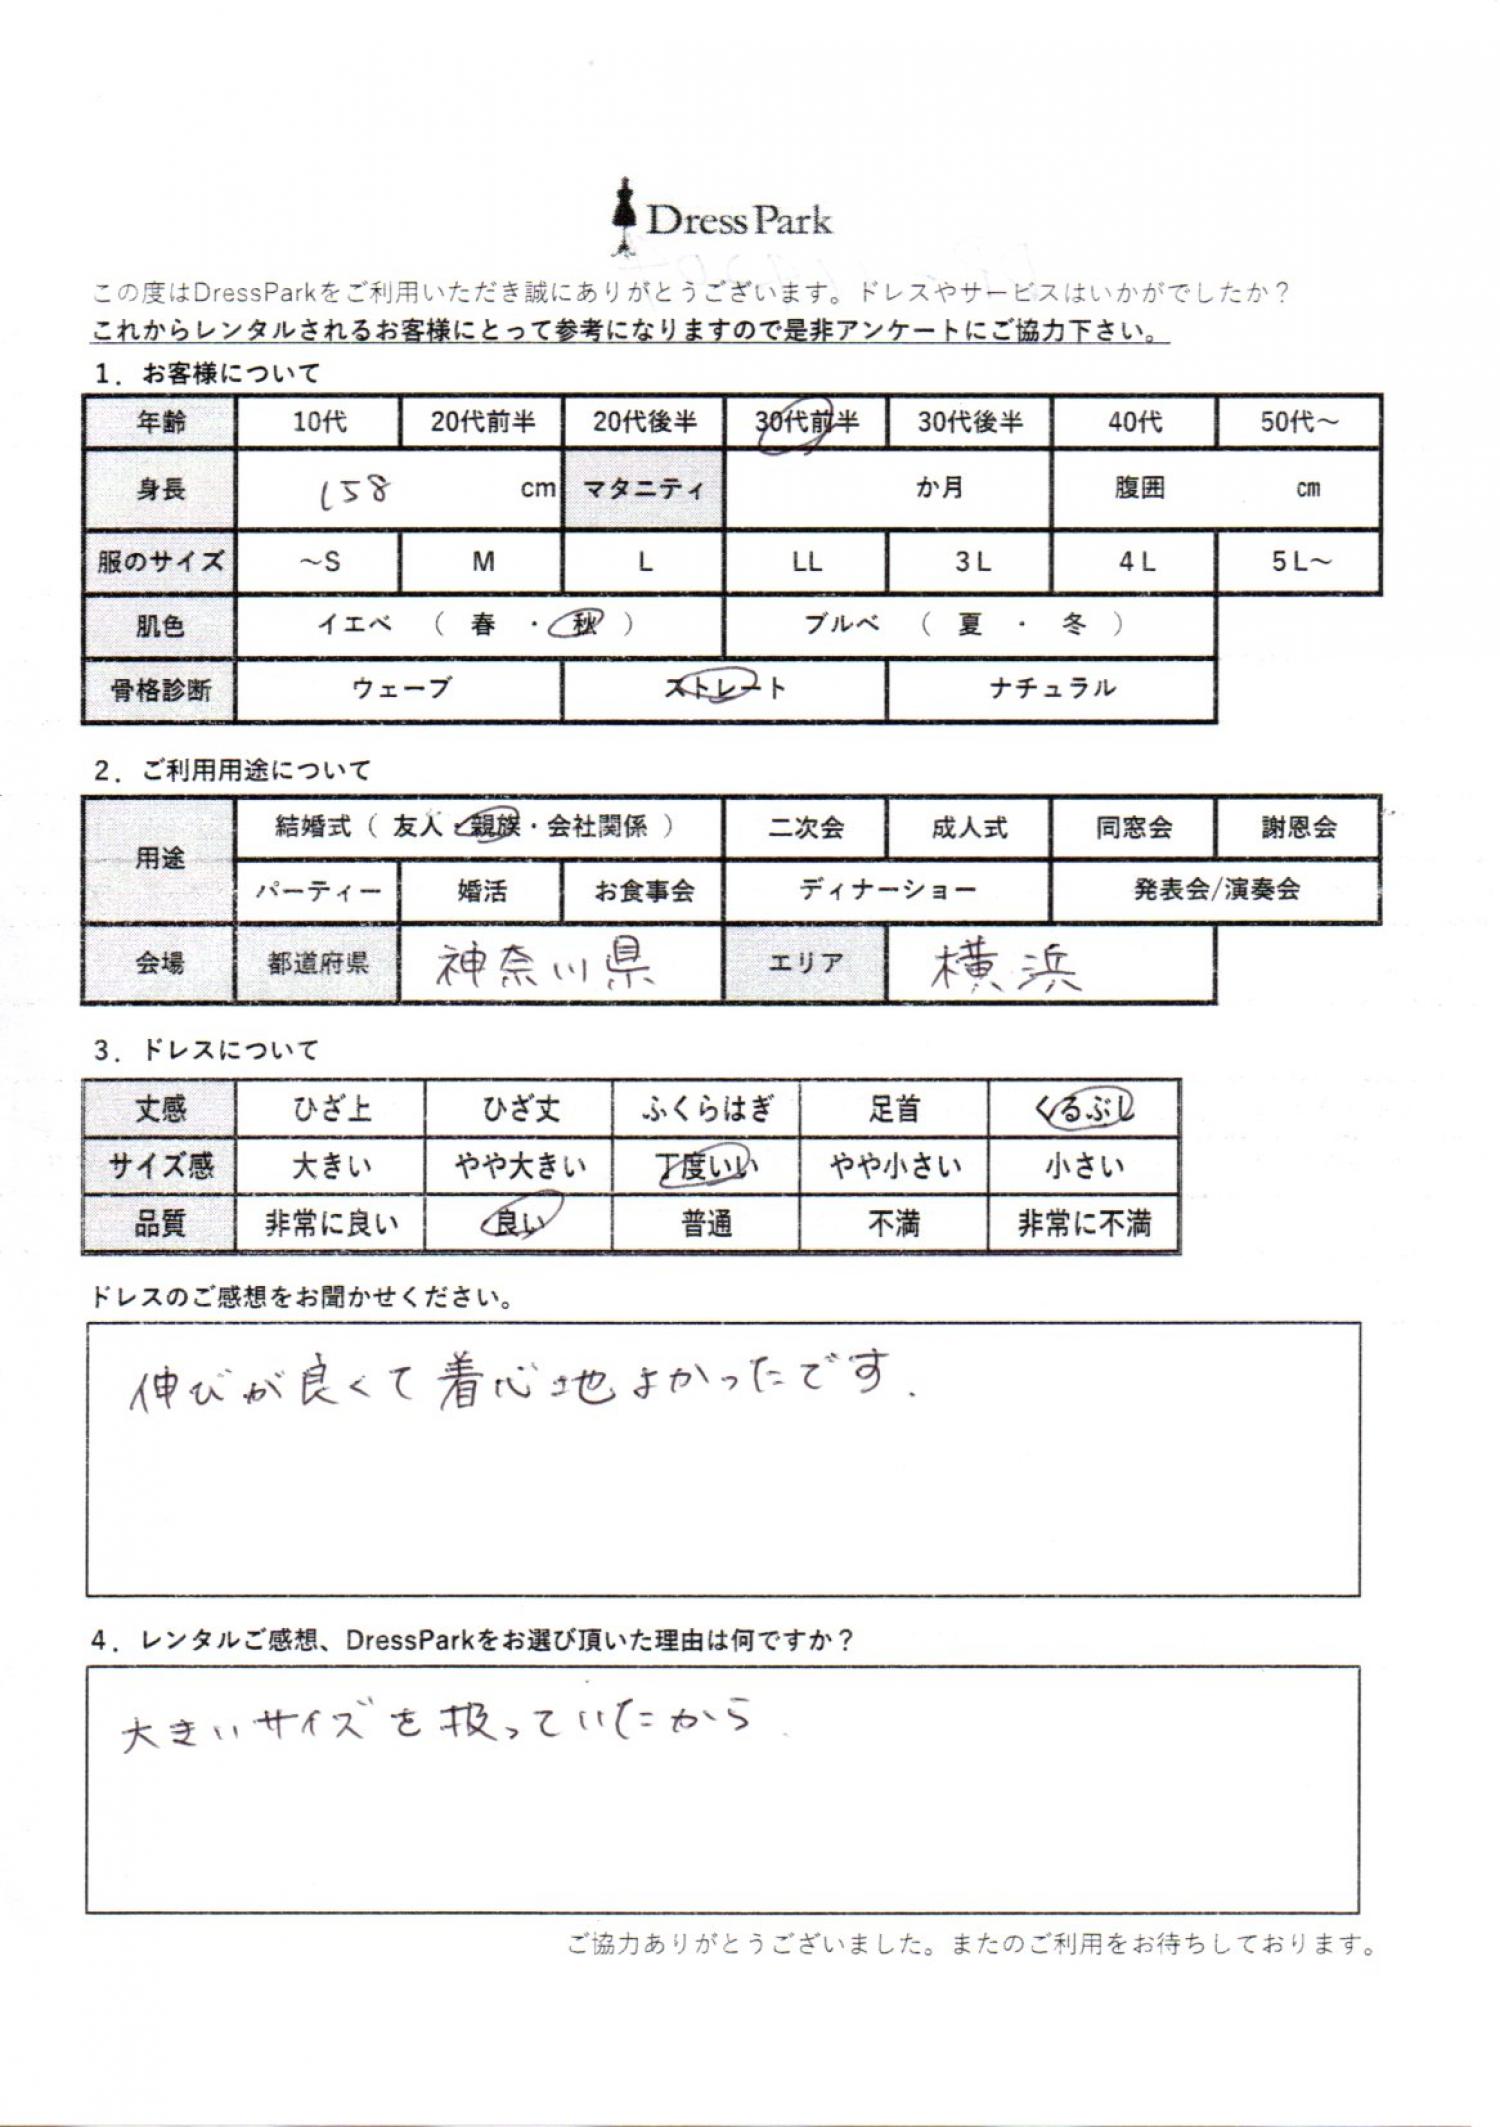 Dress Park
この度はDressParkをご利用いただき誠にありがとうございます。ドレスやサービスはいかがでしたか？
これからレンタルされるお客様にとって参考になりますので是非アンケートにご協力下さい。
1．お客様について
年齢 10代 20代前半 20代後半 30代前半 30代後半 40代 50代～
身長 158 cm マタニティ か月 腹囲 cm
服のサイズ ～S M L LL 3L 4L 5L～
肌色 イエベ （ 春 ・ 秋 ） ブルベ （ 夏 ・ 冬 ）
骨格診断 ウェーブ ストレート ナチュラル
2．ご利用用途について
用途 結婚式（ 友人・親族・会社関係 ） 二次会 成人式 同窓会 謝恩会
パーティー 婚活 お食事会 ディナーショー 発表会/演奏会
会場 都道府県 神奈川県 エリア 横浜
3．ドレスについて
丈感 ひざ上 ひざ丈 ふくらはぎ 足首 くるぶし
サイズ感 大きい やや大きい 丁度いい やや小さい 小さい
品質 非常に良い 良い 普通 不満 非常に不満
ドレスのご感想をお聞かせください。
伸びが良くて着心地よかったです.
4．レンタルご感想、DressParkをお選び頂いた理由は何ですか？
大きいサイズを扱っていたから
ご協力ありがとうございました。またのご利用をお待ちしております。